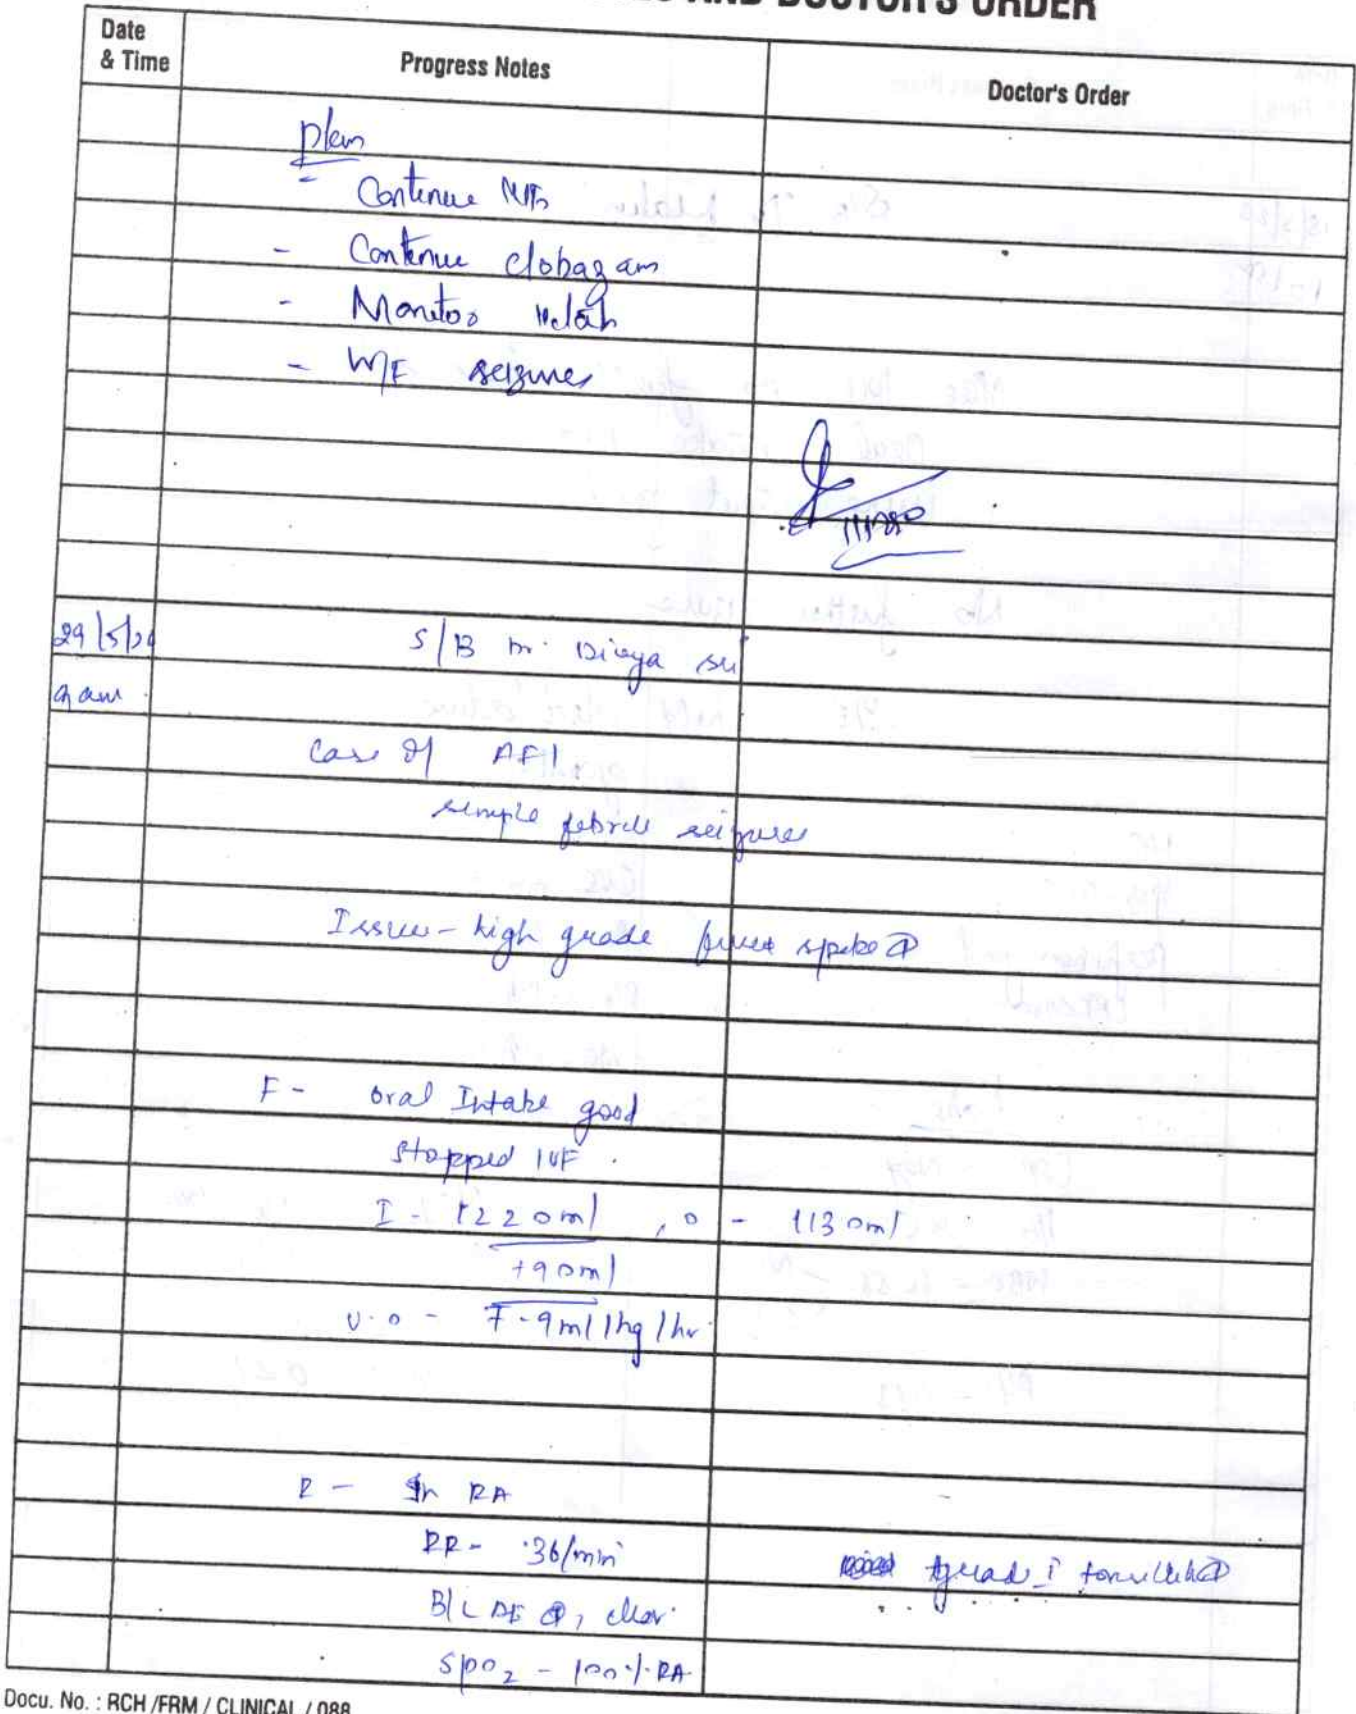 AND DOCTOR'S ORDER
Date & Time
Progress Notes
Doctor's Order
Plan
- Continue
- Continue clobazam
- Monitor
- W/F seizures
111280
29/5/20
9 am
S/B Dr. Divya
Case of AFI
simple febrile seizures
Issues - high grade fever spike ⊕
F - oral Intake good
stopped IVF.
I - 1220ml, O - 1130ml
+90ml
U.O - 7.9ml/kg/hr
R - In RA
RR - 36/min
B/L AE ⊕, clear.
SpO2 - 100% RA
grade I tonsillitis ⊕
Docu. No. : RCH /FRM / CLINICAL / 088